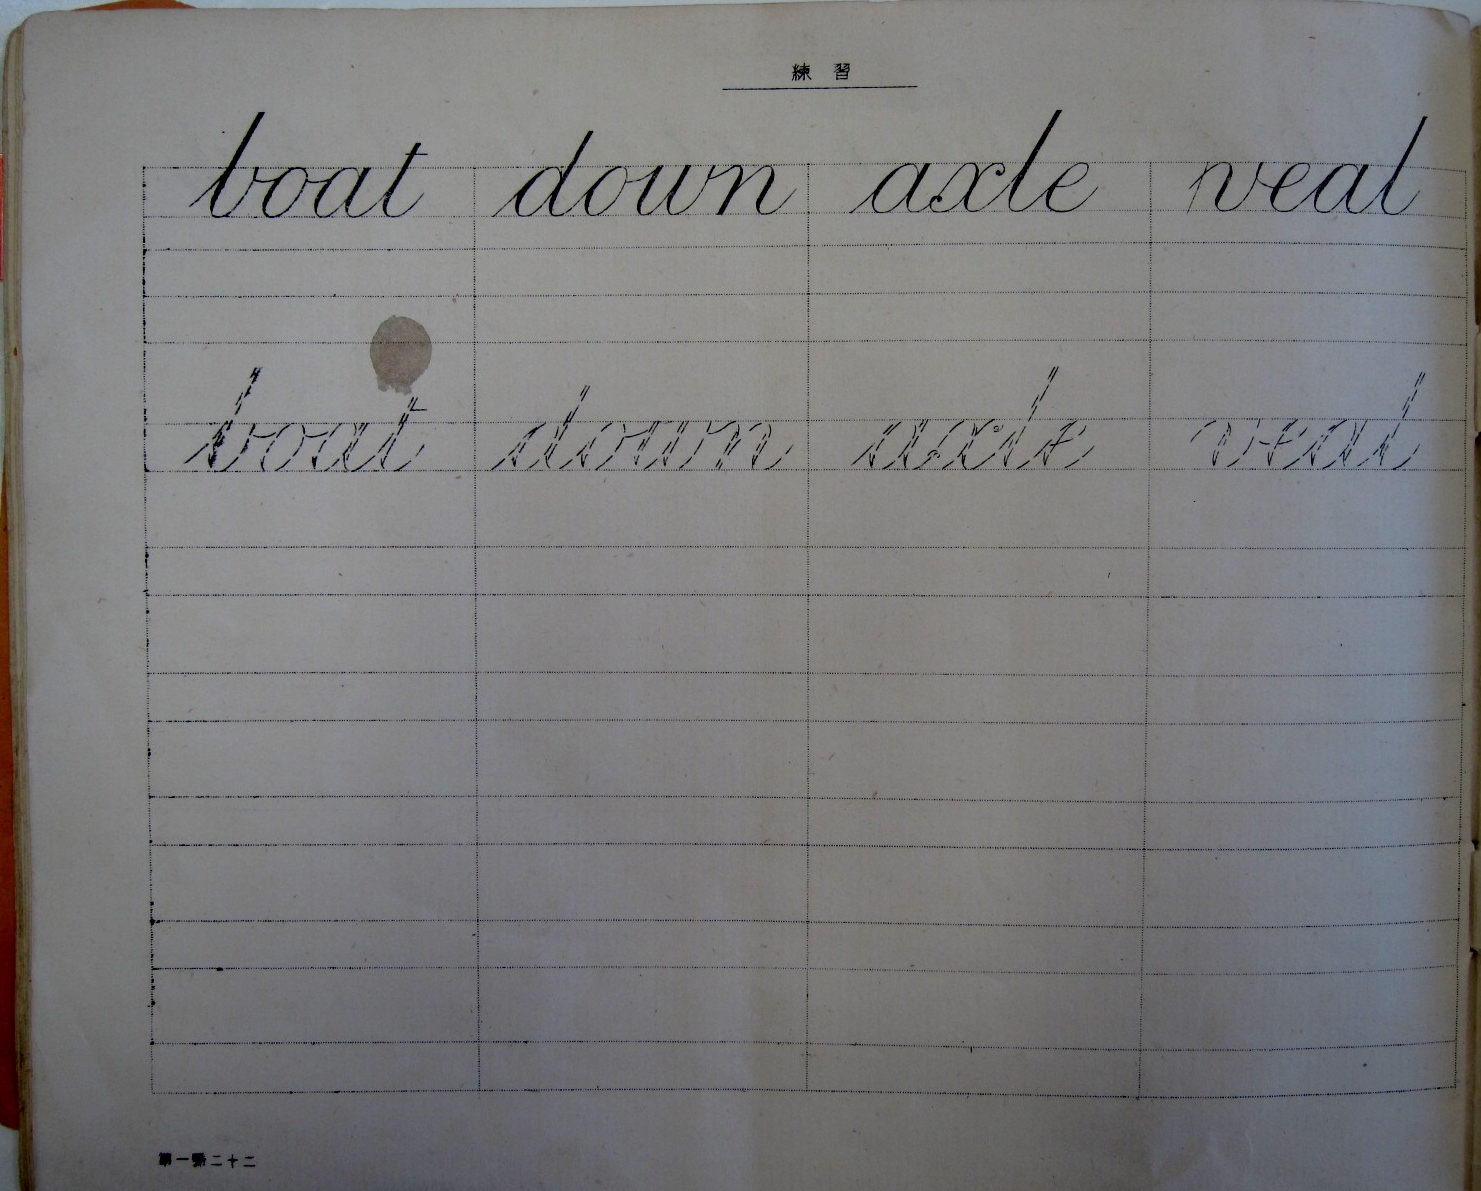 練習
boat down axle veal
boat down axle veal
第一號二十二